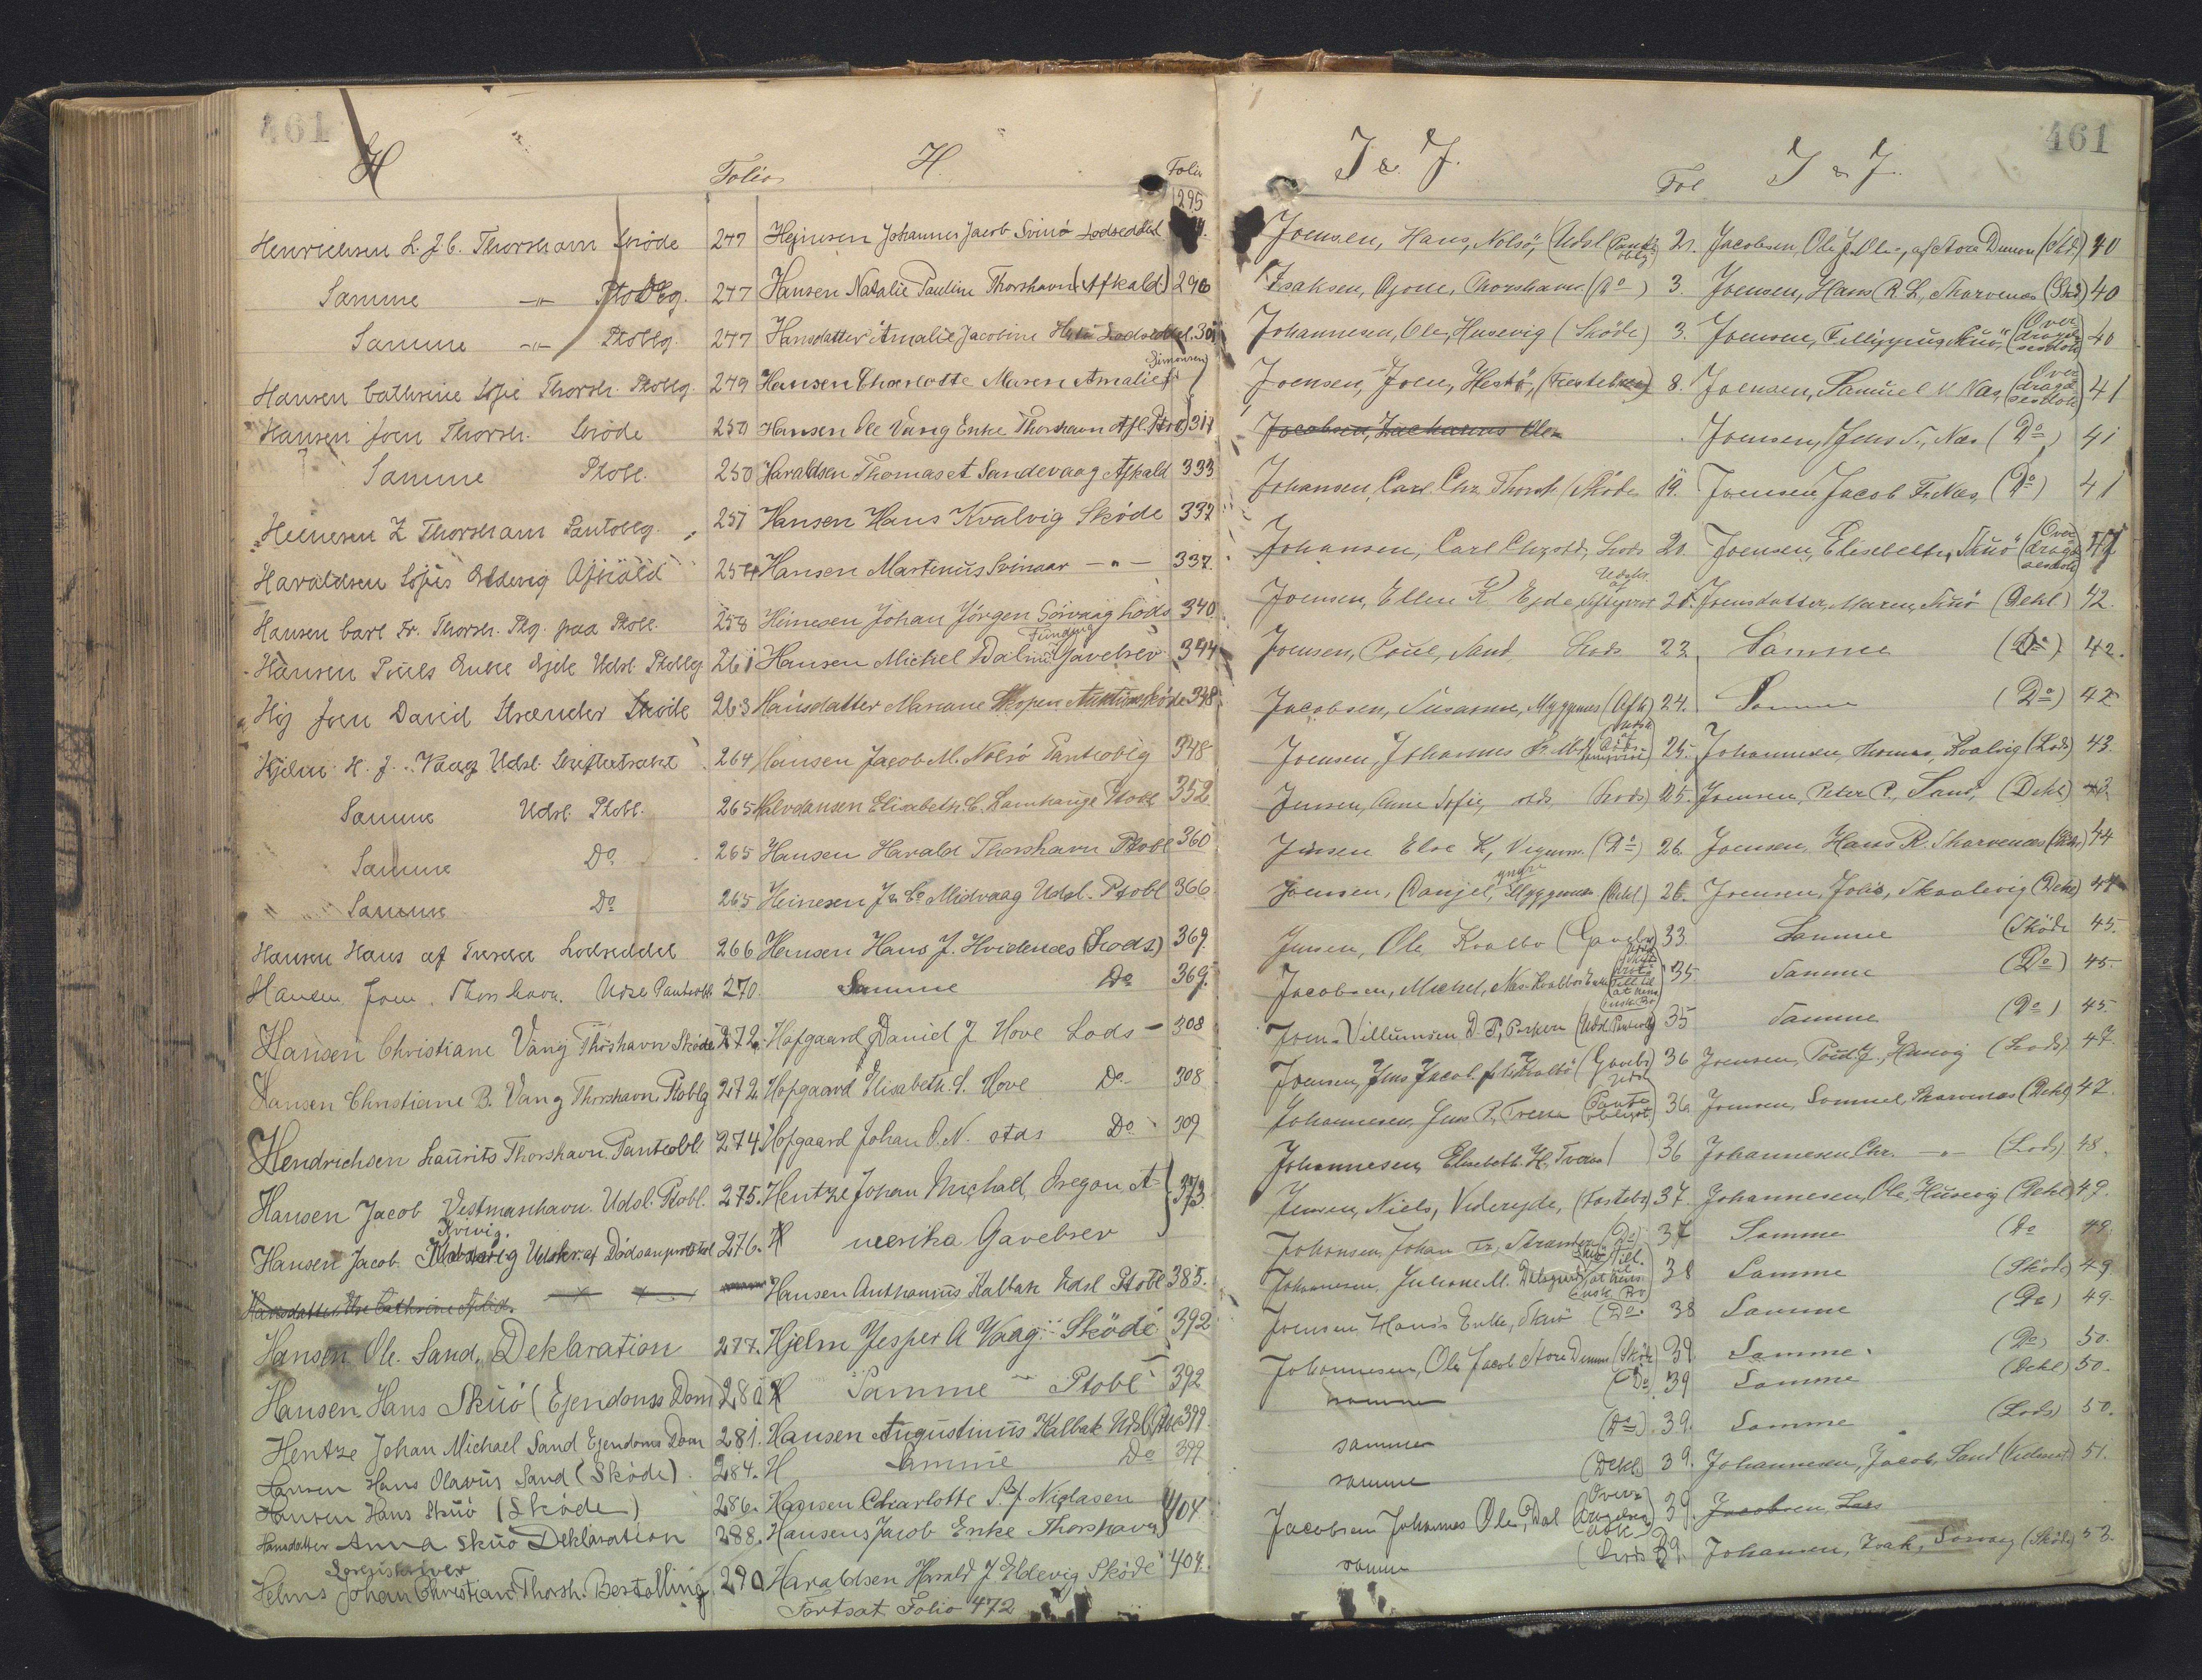 461
H
Folio
Henrichsen L. J. C. Thorshavn Skøde 247
Samme -"- Ptoblg. 247
Samme -"- Ptoblg. 247
Hansen Cathrine Sofie Thorsh. Ptoblg. 249
Hansen Joen Thorsh. Skøde 250
Samme Ptobl. 250
Heinesen Z Thorshavn Pantoblg. 251
Haraldsen Sofus Eldevig Afkald 254
Hansen Carl Fr. Thorsh. Ptg. paa Ptobl. 258
Hansen Pouls Enke Ejde Udsl. Ptoblg 261
Høj Joen David Strænder Skøde 263
Hjelm H. J. Vaag Udsl. Skifteextract 264
Samme Udsl. Ptobl. 265
Samme Do 265
Samme Do 265
Hansen Hans af Tveraa Lodseddel 266
Hansen Joen Thorshavn. Udsl Pantobl 270.
Hansen Christiane Vang Thorshavn Skøde 272.
Hansen Christiane B. Vang Thorshavn. Ptoblg 272.
Hendrichsen Laurits Thorshavn. Pantobl. 274
Hansen Jacob Vestmanhavn. Udsl. Ptobl. 275.
Kvivig.
Hansen Jacob Udskr. af Dødsanprotokol 276.
Hansdatter Else Cathrine
Hansen Ole. Sand. Deklaration 277.
Hansen Hans Skuø (Ejendoms Dom) 280
Hentze Johan Michael Sand Ejendoms Dom 281.
Hansen Hans Olavus Sand (Skøde). 284.
Hansen Hans Skuø (Skøde) 286.
Hansdatter Anna Skuø Deklaration 288.
Helms Johan Christian Thorsh. Bestalling. 290
H.
Folio
295
Hejnesen Johannes Jacob Svinø Lodseddel
Hansen Natalie Pauline Thorshavn (Afkald) 296
Hansdatter Amalie Jacobine Lodseddel.
(Simonsen)
Hansen Charlotte Maren Amalie
Hansen Ole Vang Enke Thorshavn 311
Haraldsen Thomas et Sandevaag Afkald 333
Hansen Hans Kvalvig Skøde 337
Hansen Martinus Svinaar -"- 337.
Heinesen Johan Jørgen Sørvaag Lods 340
Funding
Hansen Michel Gavebrev 344
Hansdatter Mariane Skopen Auktionsskøde 348
Hansen Jacob M. Nolsø Pantoblg 348
Halvdansen Elisabeth C. Lamhauge Ptobl 352
Hansen Harald Thorshavn Ptobl 360
Heinesen J & Co Midvaag Udsl. Ptobl 366
Hansen Hans J. Hvidenæs (Lods) 369.
Samme Do 369.
Hofgaard Daniel J Hove Lods - 308
Hofgaard Elisabeth. S. Hove Do- 308
Hofgaard Johan O. N. stds Do 309
Hentze Johan Michael, Oregon A- 373.
merika Gavebrev
Hansen Anthonius Kalbak Udsl Ptobl 385.
Hjelm Jesper A Vaag Skøde 392
Samme Ptobl 392
Hansen Augustinus Kalbak Udsl. 399.
Samme Do 399
Hansen Charlotte S. f. Niclasen
Hansens Jacob Enke Thorshavn 404
Haraldsen Harald J. Eldevig Skøde 404.
Fortsat Folio 472
461
I & J.
Fol
Joensen, Hans, Nolsø, (Udsl Pantoblg) 2.
Isaksen, Thorshavn (Do) 3.
Johannesen, Ole, Husevig (Skøde) 3.
Joensen, Joen, Hestø, (Festebrev) 8.
Jacobsen, Zacharias Ole
Johansen, Carl Chr. Thorsh. (Skøde 19.
Johansen, Carl Lods 21.
Joensen, Ellen K, Ejde, 21.
Joensen, Poul, Sand, Lods 22
Jacobsen, Susanne, Myggenæs (Afk) 24.
Joensen, Johannes 25.
Jensen, Anne Sofie, stds (Lods) 25.
Jensen Else K, (Do) 26.
yngre
Joensen, Danjel, Myggenæs (Dekl) 26.
Jensen, Ole, Kvalbø (Gavebr) 33.
Jacobsen, Michel, Næs 35.
Joen-Villumsen D. P, Porkeri (Udsl Pantoblg) 35
Joensen, Jens Jacob, Kvalbø (Gavebr) 36
Johannesen, Jens P., Tveraa 36.
Johannesen, Elisabeth. H., Tveraa ( ) 36
Jensen, Niels, Videreyde, (Festebr) 37.
Johansen, Johan Fr, Strander (Do) 37
Johannesen, Juliane M. 38
Joensen Hans's Enke, Skuø (Do. 38
Johannesen, Ole Jacob Store Dimon (Skøde) 39.
samme (Do) 39
samme (Do). 39.
samme (Dekl) 39.
Jacobsen Johannes Ole, Dal 39.
samme (Lods) 39.
I & J.
Jacobsen, Ole J. Ole, af Store Dimon (Skd.) 40
Joensen, Hans R. L, Skarvenæs (Skd) 40
Joensen, Fillippus, Skuø, 40
Joensen, Samuel N Næs, 41
Joensen, Jens S., Næs (Do) 41
Joensen Jacob Fr. Næs, (Do) 41
Joensen, Elisebeth, Skuø
Joensdatter, Maren, Skuø (Dekl) 42.
Samme (Do) 42.
Samme (Do) 42
Johannesen, Thomas, Kvalvig (Lods) 43.
Joensen, Peter P., Sand, (Dekl) 43.
Joensen, Hans R. Skarvenæs 44
Joensen, Skaalevig (Dekl) 44
Samme (Skøde 45.
Samme (Do) 45.
Samme (Do) 45.
Joensen, Poul. J., Husevig (Lods) 47.
Joensen, Samuel, Skarvenæs (Dekl) 47.
Johannesen Chr. -"- (Lods) 48.
Johannesen, Ole, Husevig (Dekl) 49.
Samme (Do 49.
Samme (Skøde) 49.
Samme (Do) 49.
Samme. (Do) 50.
Samme (Dekl) 50.
Samme (Lods) 50.
Johannesen, Jacob, Sand 51.
Jacobsen, Lars
Johansen, Isak, Sørvaag (Skøde) 53.